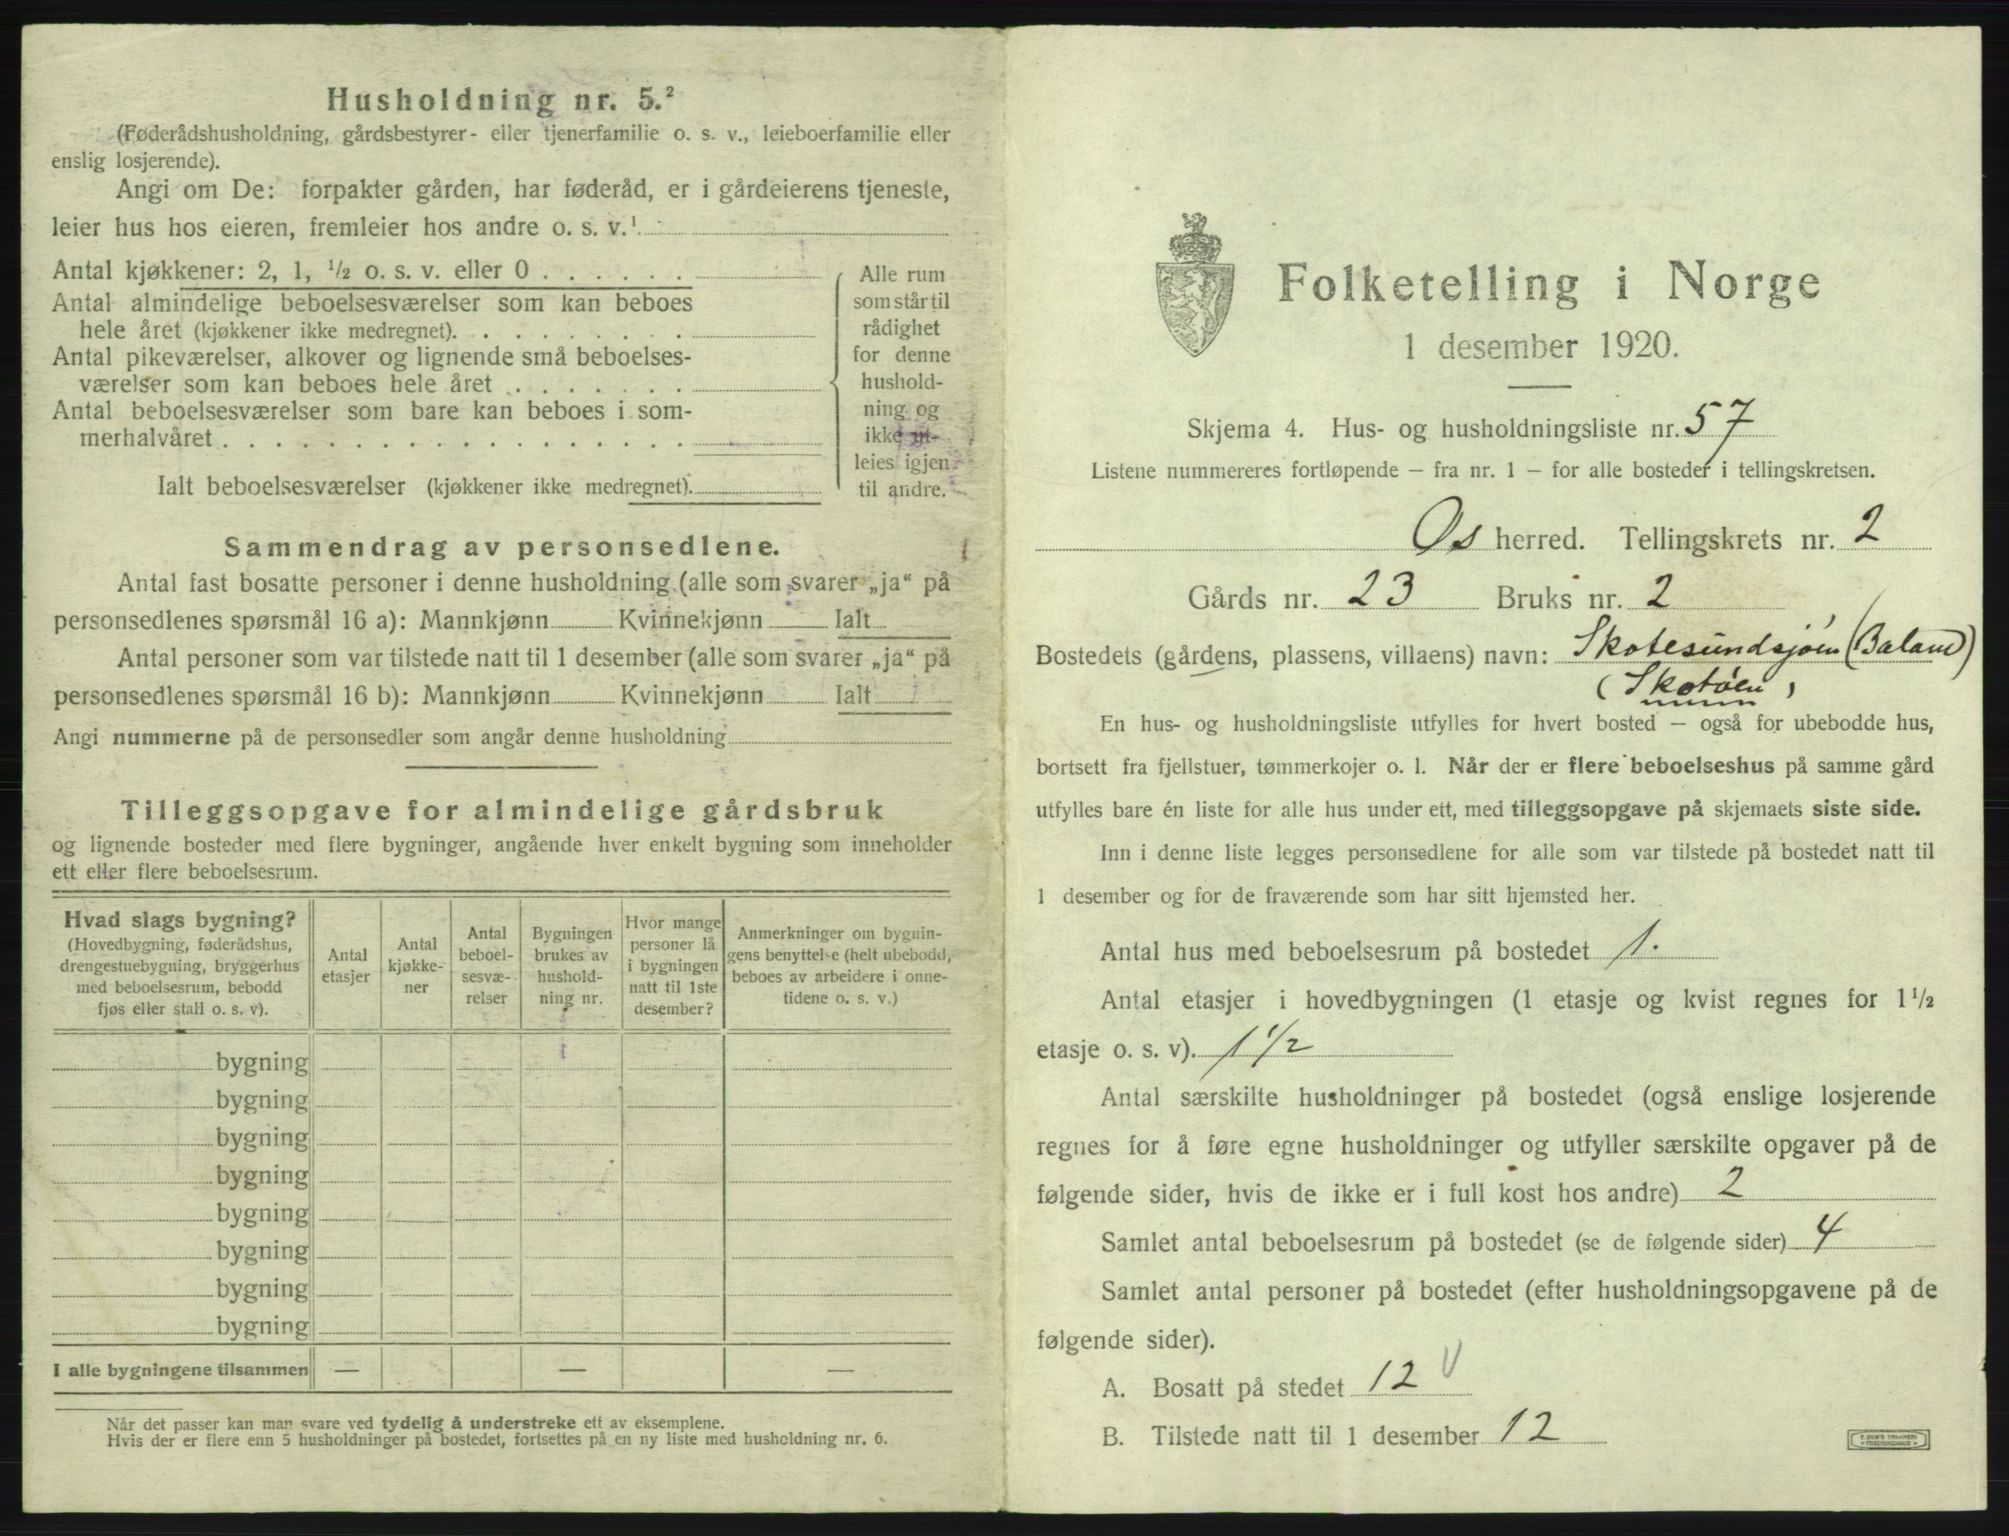 Husholdning nr. 5.²
(Føderådshusholdning, gårdsbestyrer- eller tjenerfamilie o. s. v., leieboerfamilie eller
enslig losjerende).
Angi om De: forpakter gården, har føderåd, er i gårdeierens tjeneste,
leier hus hos eieren, fremleier hos andre o. s. v.¹
Antal kjøkkener: 2, 1, ½ o. s. v. eller 0 . . . . . .
Antal almindelige beboelsesværelser som kan beboes
hele året (kjøkkener ikke medregnet). . . . . . . .
Antal pikeværelser, alkover og lignende små beboelses-
værelser som kan beboes hele året . . . . . . .
Antal beboelsesværelser som bare kan beboes i som-
merhalvåret . . . . . . . . . . . . . . . . . .
Ialt beboelsesværelser (kjøkkener ikke medregnet).
Alle rum
som står til
rådighet
for denne
hushold-
ning og
ikke ut-
leies igjen
til andre.
Sammendrag av personsedlene.
Antal fast bosatte personer i denne husholdning (alle som svarer „ja“ på
personsedlenes spørsmål 16 a): Mannkjønn Kvinnekjønn Ialt
Antal personer som var tilstede natt til 1 desember (alle som svarer „ja“ på
personsedlenes spørsmål 16 b): Mannkjønn Kvinnekjønn Ialt
Angi nummerne på de personsedler som angår denne husholdning
Tilleggsopgave for almindelige gårdsbruk
og lignende bosteder med flere bygninger, angående hver enkelt bygning som inneholder
ett eller flere beboelsesrum.
Hvad slags bygning?
(Hovedbygning, føderådshus,
drengestuebygning, bryggerhus
med beboelsesrum, bebodd
fjøs eller stall o. s. v).
Antal
etasjer
Antal
kjøkke-
ner
Antal
beboel-
sesvæ-
relser
Bygningen
brukes av
hushold-
ning nr.
Hvor mange
personer lå
i bygningen
natt til 1ste
desember?
Anmerkninger om bygnin-
gens benyttelse (helt ubebodd,
beboes av arbeidere i onne-
tidene o. s. v.)
bygning
bygning
bygning
bygning
bygning
bygning
bygning
bygning
I alle bygningene tilsammen — — —
Når det passer kan man svare ved tydelig å understreke ett av eksemplene.
Hvis der er flere enn 5 husholdninger på bostedet, fortsettes på en ny liste med husholdning nr. 6.
Folketelling i Norge
1 desember 1920.
Skjema 4. Hus- og husholdningsliste nr. 57
Listene nummereres fortløpende — fra nr. 1 — for alle bosteder i tellingskretsen.
Os herred. Tellingskrets nr. 2
Gårds nr. 23 Bruks nr. 2
Bostedets (gårdens, plassens, villaens) navn: Skotesundsjöen (Baland)
(Skotöen)
En hus- og husholdningsliste utfylles for hvert bosted — også for ubebodde hus,
bortsett fra fjellstuer, tømmerkojer o. l. Når der er flere beboelseshus på samme gård
utfylles bare én liste for alle hus under ett, med tilleggsopgave på skjemaets siste side.
Inn i denne liste legges personsedlene for alle som var tilstede på bostedet natt til
1 desember og for de fraværende som har sitt hjemsted her.
Antal hus med beboelsesrum på bostedet 1.
Antal etasjer i hovedbygningen (1 etasje og kvist regnes for 1½
etasje o. s. v). 1½
Antal særskilte husholdninger på bostedet (også enslige losjerende
regnes for å føre egne husholdninger og utfyller særskilte opgaver på de
følgende sider, hvis de ikke er i full kost hos andre) 2
Samlet antal beboelsesrum på bostedet (se de følgende sider) 4
Samlet antal personer på bostedet (efter husholdningsopgavene på de
følgende sider).
A. Bosatt på stedet 12
B. Tilstede natt til 1 desember 12